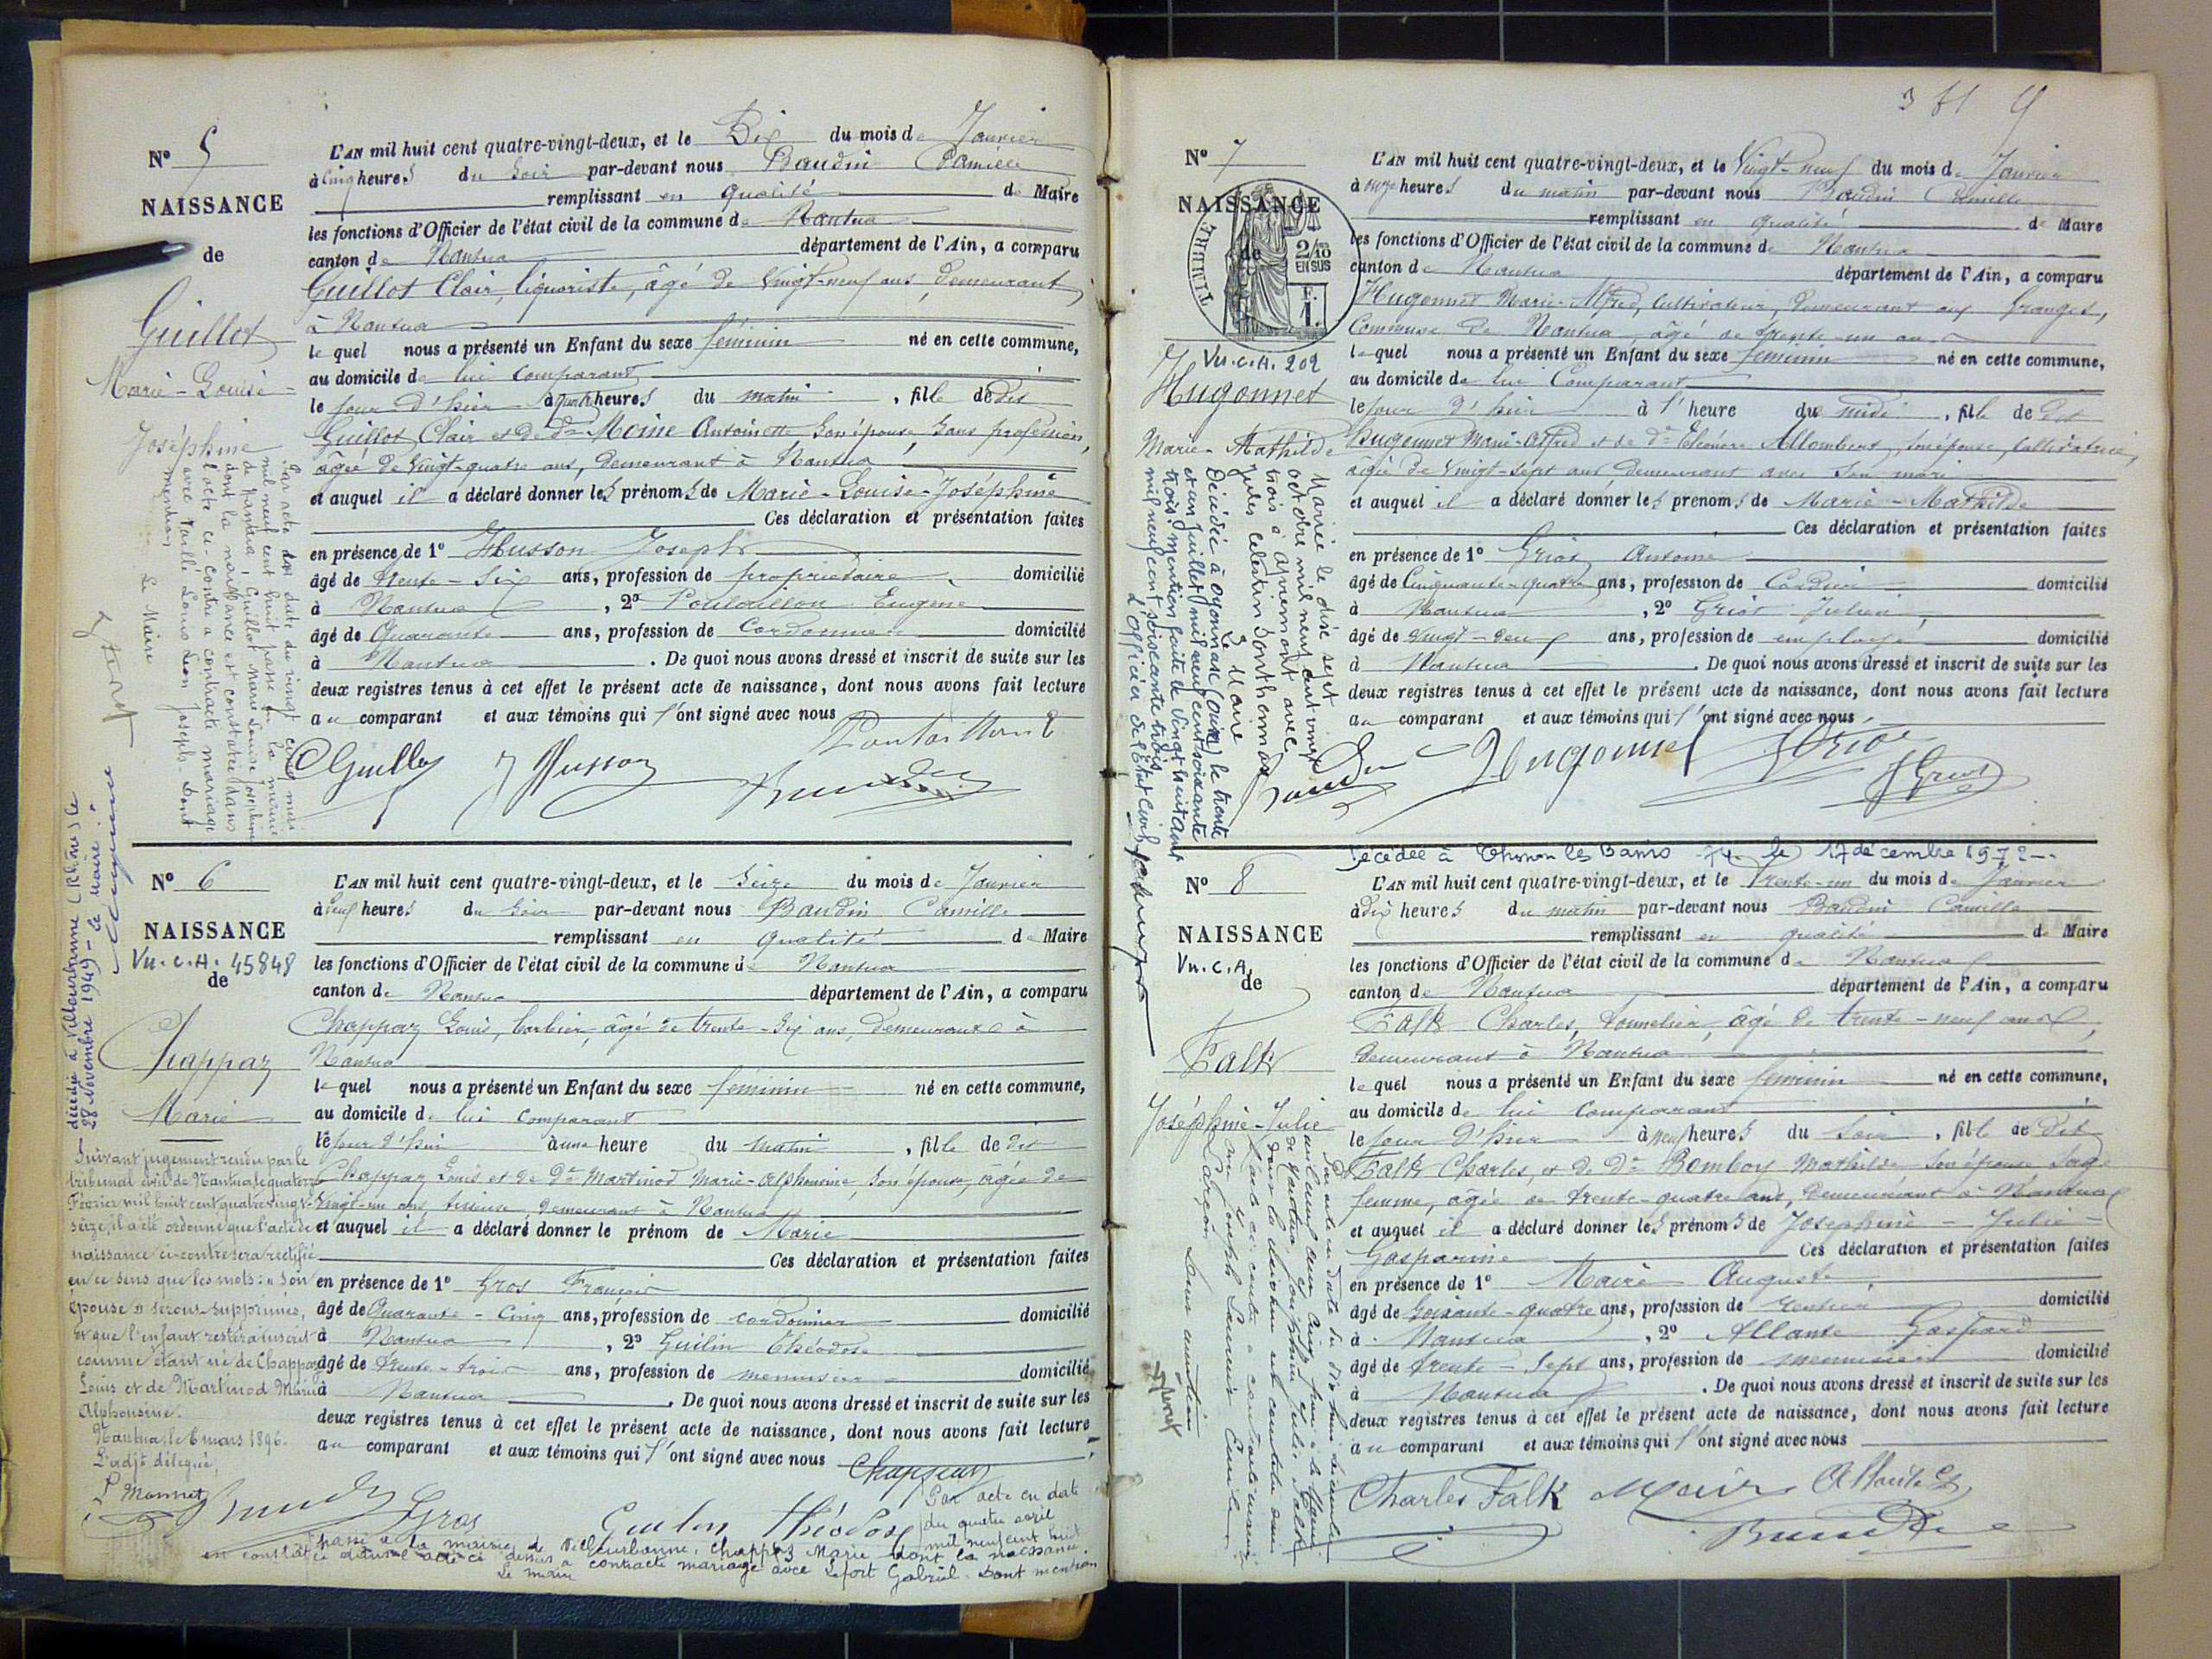 Nº 5
NAISSANCE
de
Guillot
Marie-Louise-
Joséphine
L'AN mil huit cent quatre-vingt-deux, et le Dix du mois de Janvier
à cinq heures du soir par-devant nous Baudin Camille
remplissant en qualité de Maire
les fonctions d'Officier de l'état civil de la commune de Nantua
canton de Nantua département de l'Ain, a comparu
Guillot Clair, liquoriste, âgé de Vingt-neuf ans, demeurant
à Nantua
le quel nous a présenté un Enfant du sexe féminin né en cette commune,
au domicile de lui comparant
le jour d'hier à quatre heures du matin, fille de dit
Guillot Clair et de De Moine Antoinette son épouse, sans profession,
âgée de Vingt-quatre ans, demeurant à Nantua
et auquel il a déclaré donner les prénoms de Marie-Louise-Joséphine
Ces déclaration et présentation faites
en présence de 1º Husson Joseph
âgé de trente-six ans, profession de propriétaire domicilié
à Nantua, 2º Eugène
âgé de Quarante ans, profession de Cordonnier domicilié
à Nantua. De quoi nous avons dressé et inscrit de suite sur les
deux registres tenus à cet effet le présent acte de naissance, dont nous avons fait lecture
au comparant et aux témoins qui l'ont signé avec nous
C Guillot J Husson
Par acte en date du vingt cinq mai
mil neuf cent huit passé en la mairie
de Nantua, Guillot Marie Louise Joséphine
dont la naissance est constatée dans
l'acte ci-contre a contracté mariage
avec Louis Léon Joseph. Dont
mention
Le Maire
décédée à Villeurbanne (Rhône) le
28 Novembre 1949 - Le Maire
Nº 6
NAISSANCE
Vu.C.A. 45848
de
Chappaz
Marie
L'AN mil huit cent quatre-vingt-deux, et le Seize du mois de Janvier
à neuf heures du soir par-devant nous Baudin Camille
remplissant en qualité de Maire
les fonctions d'Officier de l'état civil de la commune de Nantua
canton de Nantua département de l'Ain, a comparu
Chappaz Louis, barbier, âgé de trente-six ans, demeurant à
Nantua
le quel nous a présenté un Enfant du sexe féminin né en cette commune,
au domicile de lui comparant
le jour d'hier à une heure du matin, fille de dit
Chappaz Louis et de De Martinod Marie-Alphonsine, son épouse, âgée de
Vingt-un ans, tisseuse, demeurant à Nantua
et auquel il a déclaré donner le prénom de Marie
Ces déclaration et présentation faites
en présence de 1º Gros François
âgé de Quarante-Cinq ans, profession de cordonnier domicilié
à Nantua, 2º Guilin Théodose
âgé de trente-trois ans, profession de menuisier domicilié
à Nantua. De quoi nous avons dressé et inscrit de suite sur les
deux registres tenus à cet effet le présent acte de naissance, dont nous avons fait lecture
au comparant et aux témoins qui l'ont signé avec nous
Chappaz
Gros Guilin Théodose
Suivant jugement rendu par le
tribunal civil de Nantua, le quatorze
Février mil huit cent quatre vingt-
seize, il a été ordonné que l'acte de
naissance ci-contre sera rectifié
en ce sens que les mots : « son
épouse » seront supprimés,
et que l'enfant restera inscrit
comme étant né de Chappaz
Louis et de Martinod Marie
Alphonsine.
Nantua, le 6 mars 1896.
L'adjt délégué,
Monnet
Par acte en date
du quatre avril
mil neuf cent huit
passé à la mairie de Villeurbanne, Chappaz Marie dont la naissance
est constatée dans l'acte ci dessus a contracté mariage avec Lefort Gabriel. Dont mention
Le maire
Nº 7
NAISSANCE
de
TIMBRE
2/10
EN SUS
F.
1.
Vu.C.A. 202
Hugonnet
Marie-Mathilde
L'AN mil huit cent quatre-vingt-deux, et le Vingt-neuf du mois de Janvier
à onze heures du matin par-devant nous Baudin Camille
remplissant en qualité de Maire
les fonctions d'Officier de l'état civil de la commune de Nantua
canton de Nantua département de l'Ain, a comparu
Hugonnet Marie-Alfred, Cultivateur, demeurant aux Granges,
Commune de Nantua, âgé de trente-un an
le quel nous a présenté un Enfant du sexe féminin né en cette commune,
au domicile de lui Comparant
le jour d'hier à 1 heure du midi, fille de dit
Hugonnet Marie-Alfred et de De Éléonore Allombert, son épouse, Cultivatrice,
âgée de Vingt-sept ans, demeurant avec son mari
et auquel il a déclaré donner les prénoms de Marie-Mathilde
Ces déclaration et présentation faites
en présence de 1º Griot Antoine
âgé de Cinquante-quatre ans, profession de domicilié
à Nantua, 2º Griot Julien
âgé de Vingt-deux ans, profession de employé domicilié
à Nantua. De quoi nous avons dressé et inscrit de suite sur les
deux registres tenus à cet effet le présent acte de naissance, dont nous avons fait lecture
au comparant et aux témoins qui l'ont signé avec nous
Baudin Hugonnet Griot J Griot
Mariée le dix sept
octobre mil neuf cent vingt
trois à Apremont avec
Jules Célestin Sonthonnax
Le Maire
Décédée à Oyonnax (Ain) le trente
et un juillet mil neuf cent soixante
trois. Mention faite le vingt huit août
mil neuf cent soixante trois
L'Officier de l'Etat Civil
Nº 8
NAISSANCE
Vu.C.A.
de
Falk
Joséphine-Julie
Décédée à Thonon les Bains 74 le 17 décembre 1972
L'AN mil huit cent quatre-vingt-deux, et le Trente-un du mois de Janvier
à dix heures du matin par-devant nous Baudin Camille
remplissant en qualité de Maire
les fonctions d'Officier de l'état civil de la commune de Nantua
canton de Nantua département de l'Ain, a comparu
Falk Charles, tonnelier, âgé de trente-neuf ans,
demeurant à Nantua
le quel nous a présenté un Enfant du sexe féminin né en cette commune,
au domicile de lui comparant
le jour d'hier à neuf heures du soir, fille de dit
Falk Charles, et de De Bomboy Mathilde son épouse, sage
femme, âgée de trente-quatre ans, demeurant à Nantua
et auquel il a déclaré donner les prénoms de Joséphine-Julie-
Gasparine Ces déclaration et présentation faites
en présence de 1º Maire Auguste
âgé de soixante-quatre ans, profession de rentier domicilié
à Nantua, 2º Allante Gaspard
âgé de trente-sept ans, profession de menuisier domicilié
à Nantua. De quoi nous avons dressé et inscrit de suite sur les
deux registres tenus à cet effet le présent acte de naissance, dont nous avons fait lecture
au comparant et aux témoins qui l'ont signé avec nous
Charles Falk Maire Allante G